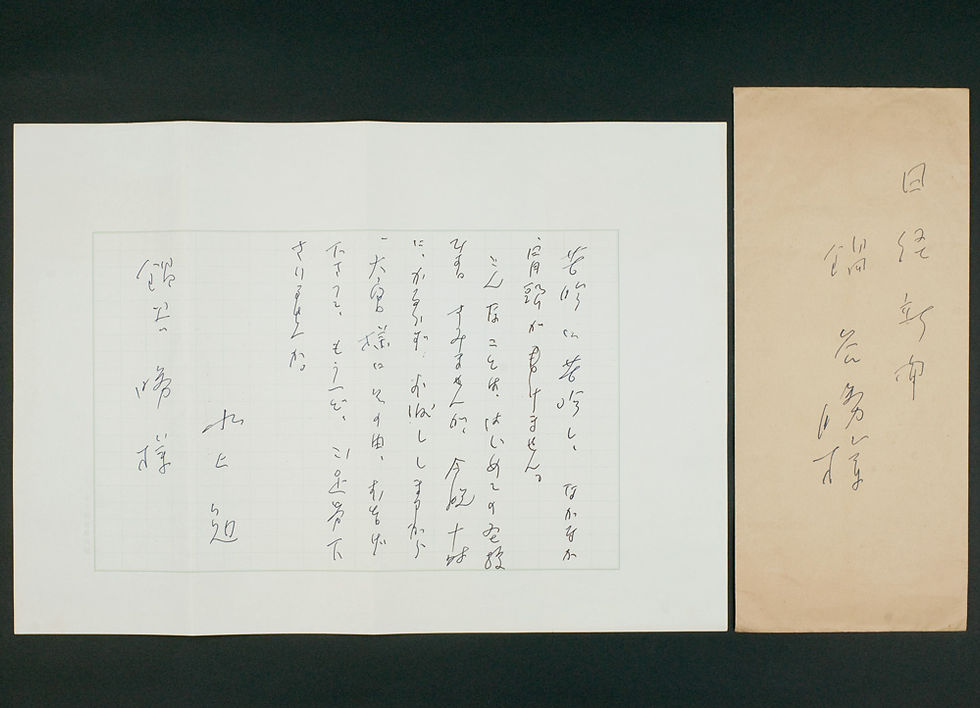 苦吟に苦吟し、なかなか
冒頭が書けません。
こんなことは、はじめての経験
です。すみませんが、今晩十時
に、かならず、お渡ししますから
大宮様にその由、お告げ
下さって、もう一ど、ご足労下
さいませんか。
水上勉
鍋谷勝様
日経新聞
鍋谷勝様